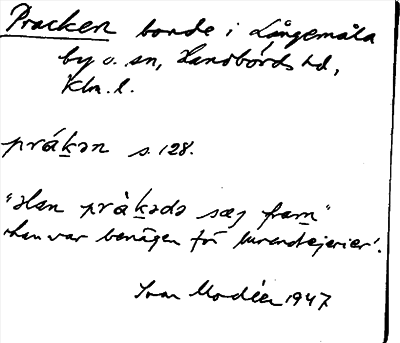 Pracken bonde i Långemåla
by o. sn, Handbörds hd,
Klm. l.
prákən s. 128.
"Han pràkədə sæj fram"
'han var benägen för lurendrejerier'.
Ivar Modéer 1947